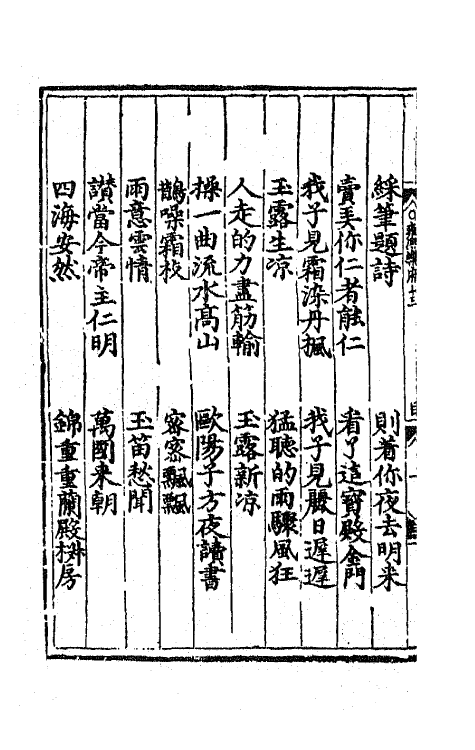 綵筆題詩　則着你夜去明来
賣美你仁者能仁　看了這寳殿金門
我子見霜染丹楓　我子見麗日遲遲
玉露生凉　猛聽的雨驟風狂
人走的力盡筋輸　玉露新凉
操一曲流水髙山　歐陽子方夜讀書
鵲噪霜枝　密密飄飄
雨意雲情　玉笛愁聞
讃當今帝主仁明　萬國来朝
四海安然　錦重重蘭殿椒房